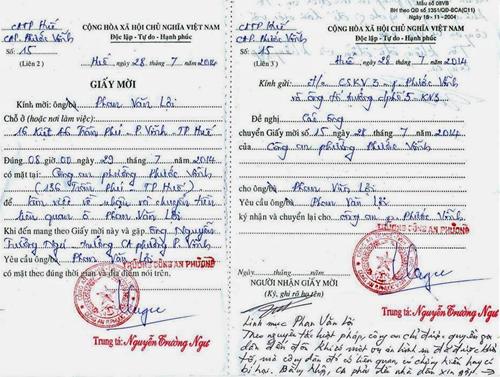 CATP Huế
CAP. Phước Vĩnh
Số: 15
(Liên 2)
CỘNG HÒA XÃ HỘI CHỦ NGHĨA VIỆT NAM
Độc lập - Tự do - Hạnh phúc
Huế, ngày 28 tháng 7 năm 2014
GIẤY MỜI
Kính mời: ông/bà Phan Văn Lợi
Chỗ ở (hoặc nơi làm việc):
16 Kiệt 46 Trần Phú - P. Vĩnh - TP Huế
Đúng 08 giờ 00 ngày 29 tháng 7 năm 2014
có mặt tại: Công an phường Phước Vĩnh
(136 Trần Phú - TP Huế)
để làm việc về
liên quan Phan Văn Lợi
Khi đến mang theo Giấy mời này và gặp ông Nguyễn
Trường Ngư - trưởng CA phường P. Vĩnh
Yêu cầu ông/bà Phan Văn Lợi
có mặt theo đúng thời gian và địa điểm nói trên.
TRƯỞNG CÔNG AN PHƯỜNG
Trung tá: Nguyễn Trường Ngư
Mẫu số 08VB
BH theo QĐ số 1351/QĐ-BCA(C11)
Ngày 18 - 11 - 2004
CATP Huế
CAP. Phước Vĩnh
Số: 15
(Liên 3)
CỘNG HÒA XÃ HỘI CHỦ NGHĨA VIỆT NAM
Độc lập - Tự do - Hạnh phúc
Huế, ngày 28 tháng 7 năm 2014
Kính gửi: đ/c CSKV 3 - p. Phước Vĩnh
và ông tổ trưởng tổ 5 - KV3
Đề nghị Các ông
chuyển Giấy mời số 15 ngày 28 tháng 7 năm 2014
của Công an phường Phước Vĩnh
cho ông/bà Phan Văn Lợi
Yêu cầu ông/bà Phan Văn Lợi
ký nhận và chuyển lại cho công an p. Phước Vĩnh
Ngày tháng năm
NGƯỜI NHẬN GIẤY MỜI
(Ký, ghi rõ họ tên)
TRƯỞNG CÔNG AN PHƯỜNG
Trung tá: Nguyễn Trường Ngư
Linh mục Phan Văn Lợi
Theo nguyên tắc luật pháp, công an chỉ được quyền gọi
dân đến đồn khi có một vụ án hình sự đã được khởi
tố, mà công dân đó có liên quan
bị hại. Bằng không, CA phải đến nhà dân xin gặp